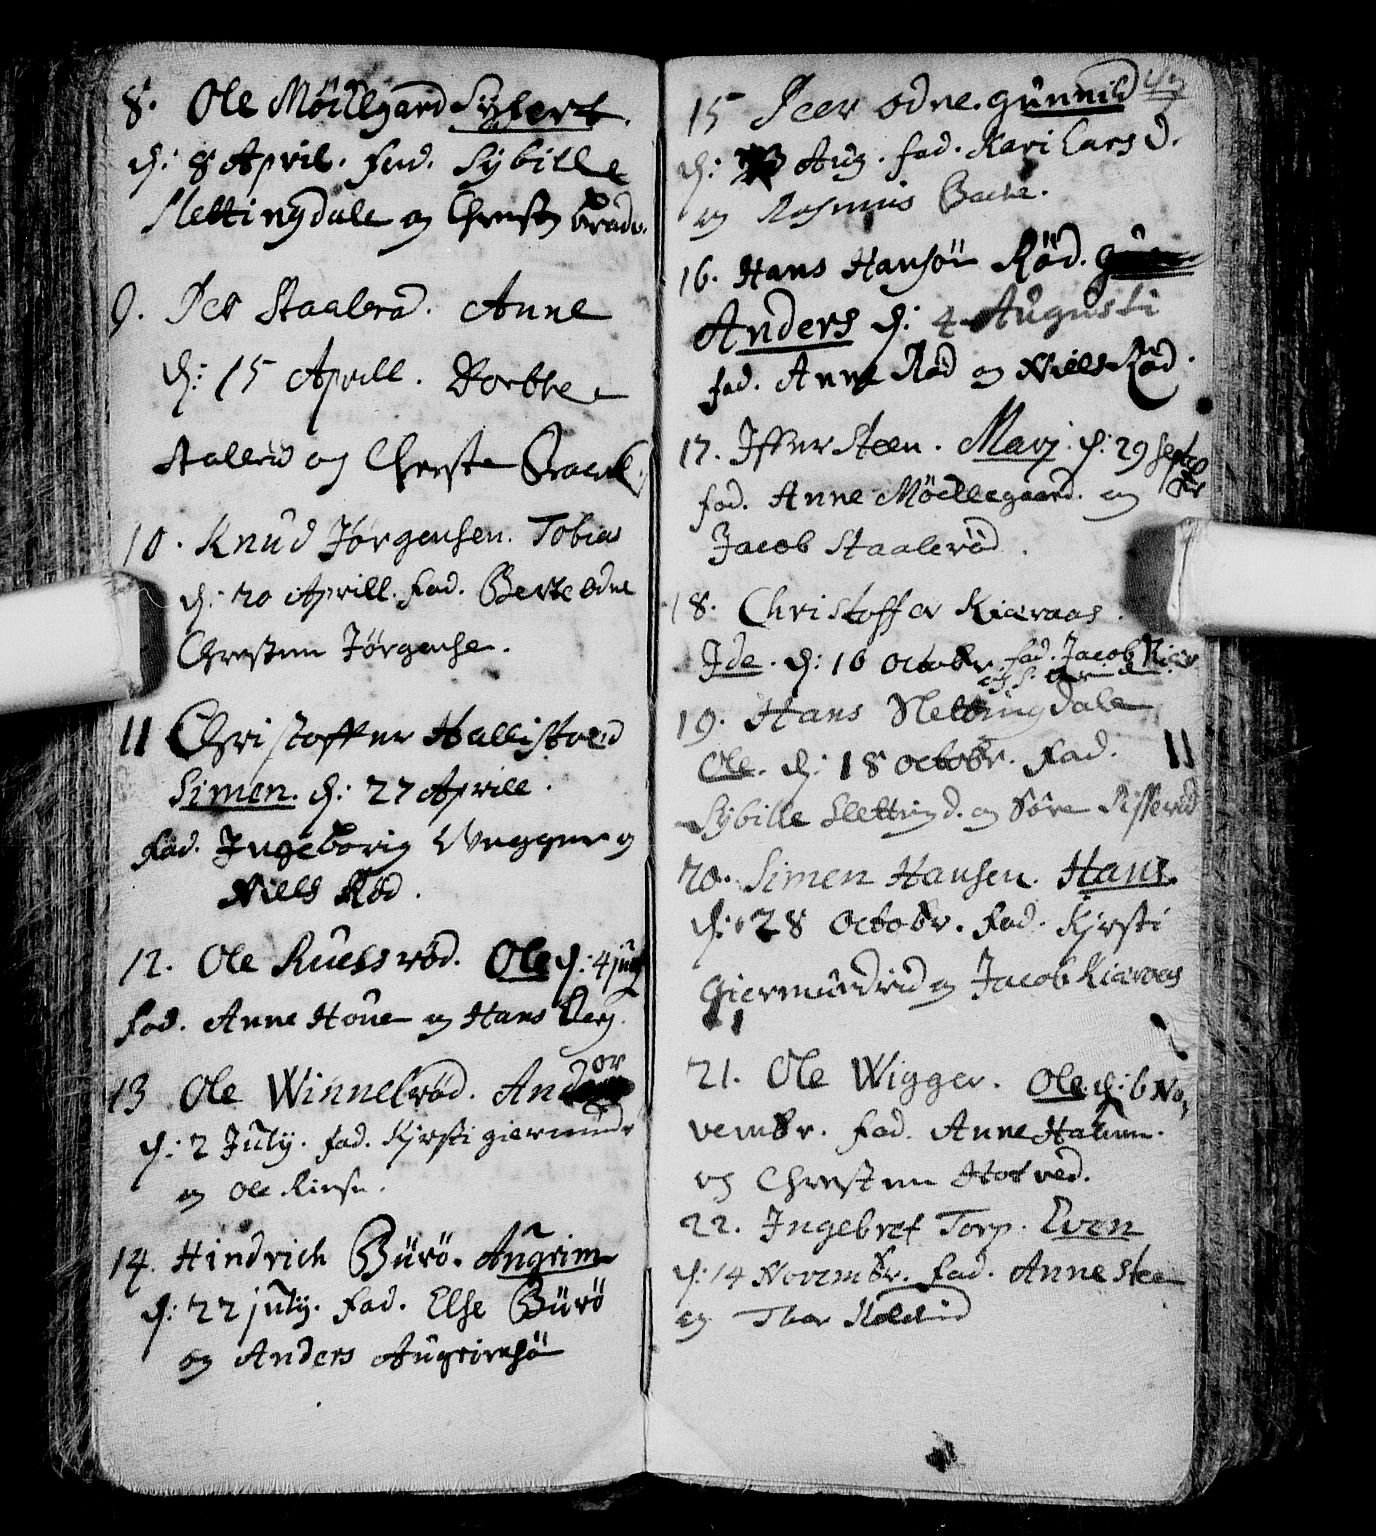 8. Ole Möellgaard Sÿfert.
d: 8 April. Fad. Sÿbille
Slettingdale og Christen
9. Per Staalerød. Anne
d: 15 Aprill. Dorthe
Stalerød og Christe
10. Knud Jörgensen. Tobias
d: 20 Aprill. Fad. Berte Odne
Christen Jörgense.
11 Christoffer Hallistved
Simen. d: 27 Aprill.
Fad. Ingeborig Wegger og
Niels Röd.
12. Ole Ruessröd. Ole d: 4 july
Fad. Anne Houe og Hans Berg
13 Ole Winnelröd. Andor
d: 2 Julÿ. fad. Kjrsti giermundr
og Ole
14. Hindrich Bürö. Augrim
d: 22 julÿ. Fad. Else Bürö
og Anders Augrimsö
15 Peer Odne. gunnild
d: Aug. fad. Kari Lars D.
og Rasmus
16. Hans Hansön Röd.
Anders d: 4 Augusti
fad. Anne Röd og Niels Röd.
17. Iffuer Steen. Marj. d: 29 Septeber
fad. Anne Möellegaard. og
Jacob Staaleröd.
18. Christoffer Kieraas.
Ide. d: 16 Octobr. fad. Jacob Kier
19. Hans Slettingdale
Ole. d: 18 octobr. Fad.
Sÿbille Slettingd. og Söre
20. Simen Hansen. Hans.
d: 28 Octobr. Fad. Kjrsti
Giermundrød og Jacob Kieraas
21. Ole Wigger. Ole. d: 6 No,
vembr. Fad. Anne
og Christen
22. Ingebret Torp. Even
d: 14 Novembr. Fad. Anne Stee
og Thor